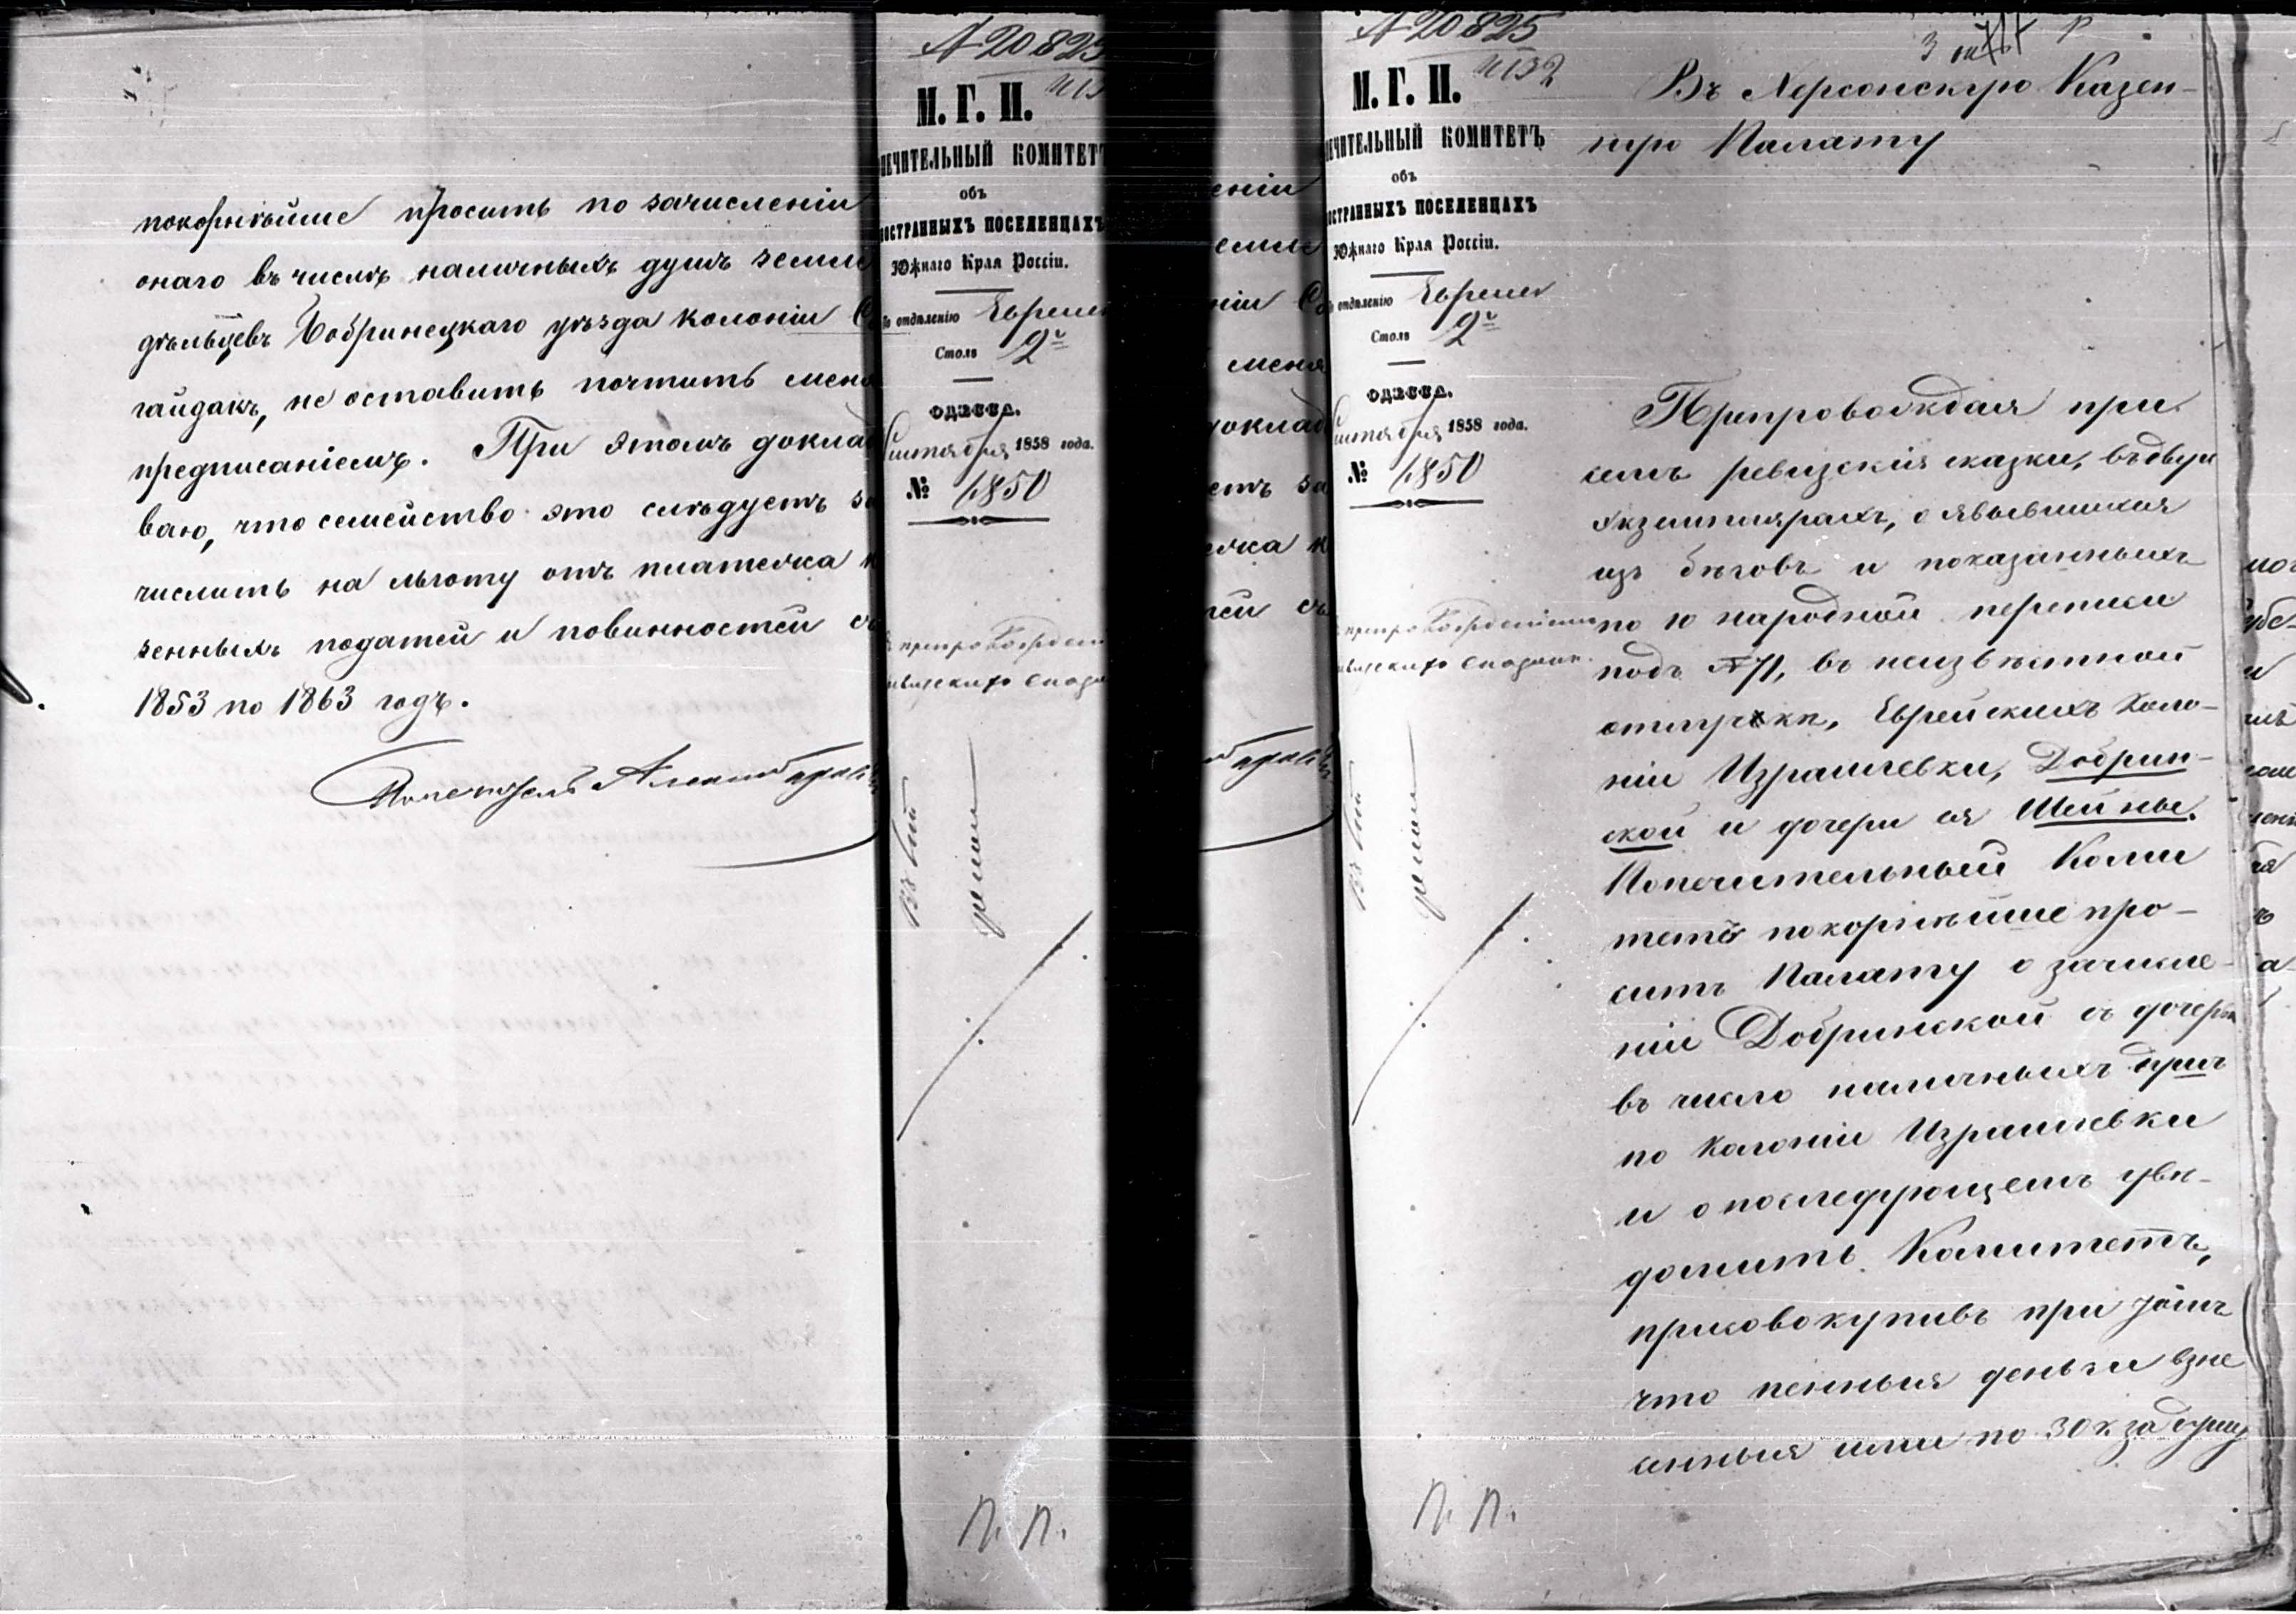 покорнѣйше просить по зачисленіи
онаго въ числѣ наличныхъ душъ земле
дѣльцевъ Бобринецкаго уѣзда колоніи Са
гайдакъ, не оставить почтить меня
предписаніемъ. При этомъ доклад
ваю, что семейство это слѣдуетъ за
числить на льготу отъ платежа к
зенныхъ податей и повинностей съ
1853 по 1863 годъ.
Попечитель
№ 20825
М. Г. И.
ПЕЧИТЕЛЬНЫЙ КОМИТЕТ
объ
ОСТРАННЫХЪ ПОСЕЛЕНЦАХЪ
Южнаго Края Россіи.
По отдѣленію Евреис
Столъ 2й
ОДЕССА.
Сентября 1858 года.
№ 6850
препровожденіи
Сказокъ
П. П.
еніи
емле
ніи Са
меня
доклад
етъ за
ежа к
тей съ
№ 20825
4152
М. Г. И.
ПЕЧИТЕЛЬНЫЙ КОМИТЕТЪ
объ
ОСТРАННЫХЪ ПОСЕЛЕНЦАХЪ
Южнаго Края Россіи.
По отдѣленію Евреис
Столъ 2й
ОДЕССА.
Сентября 1858 года.
№ 6850
препровожденіи
Сказокъ
П. П.
3 окт
Въ Херсонскую Казен-
ную Палату
Препровождая при
семъ ревизскія сказки, въ двухъ
экземплярахъ, о явившихся
изъ бѣговъ и показанныхъ
по 10 народной переписи
подъ №71, въ неизвѣстной
отлучкѣ, Еврейскихъ Коло-
ніи Израилевки, Добрин-
ской и дочери ея Шейны.
Попечительный Коми
тетъ покорнѣйше про-
ситъ Палату о зачисле-
ніи Добринской съ дочерью
въ число наличныхъ душъ
по Колоніи Израилевки
и о послѣдующемъ увѣ-
домить Комитетъ,
присовокупивъ при этомъ
что пенныя деньги взне
сенныя ими по 30 к за душу